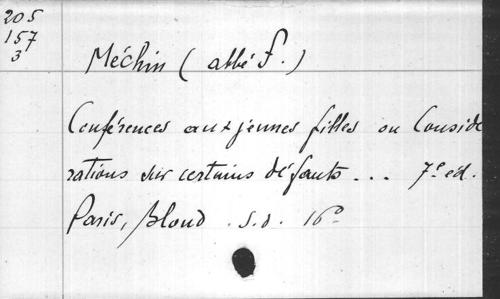 205
157
3
Méchin (abbé F.)
Conférences aux jeunes filles ou Considé
rations sur certains défauts ... 7e éd.
Paris, Bloud . s.d. 16°